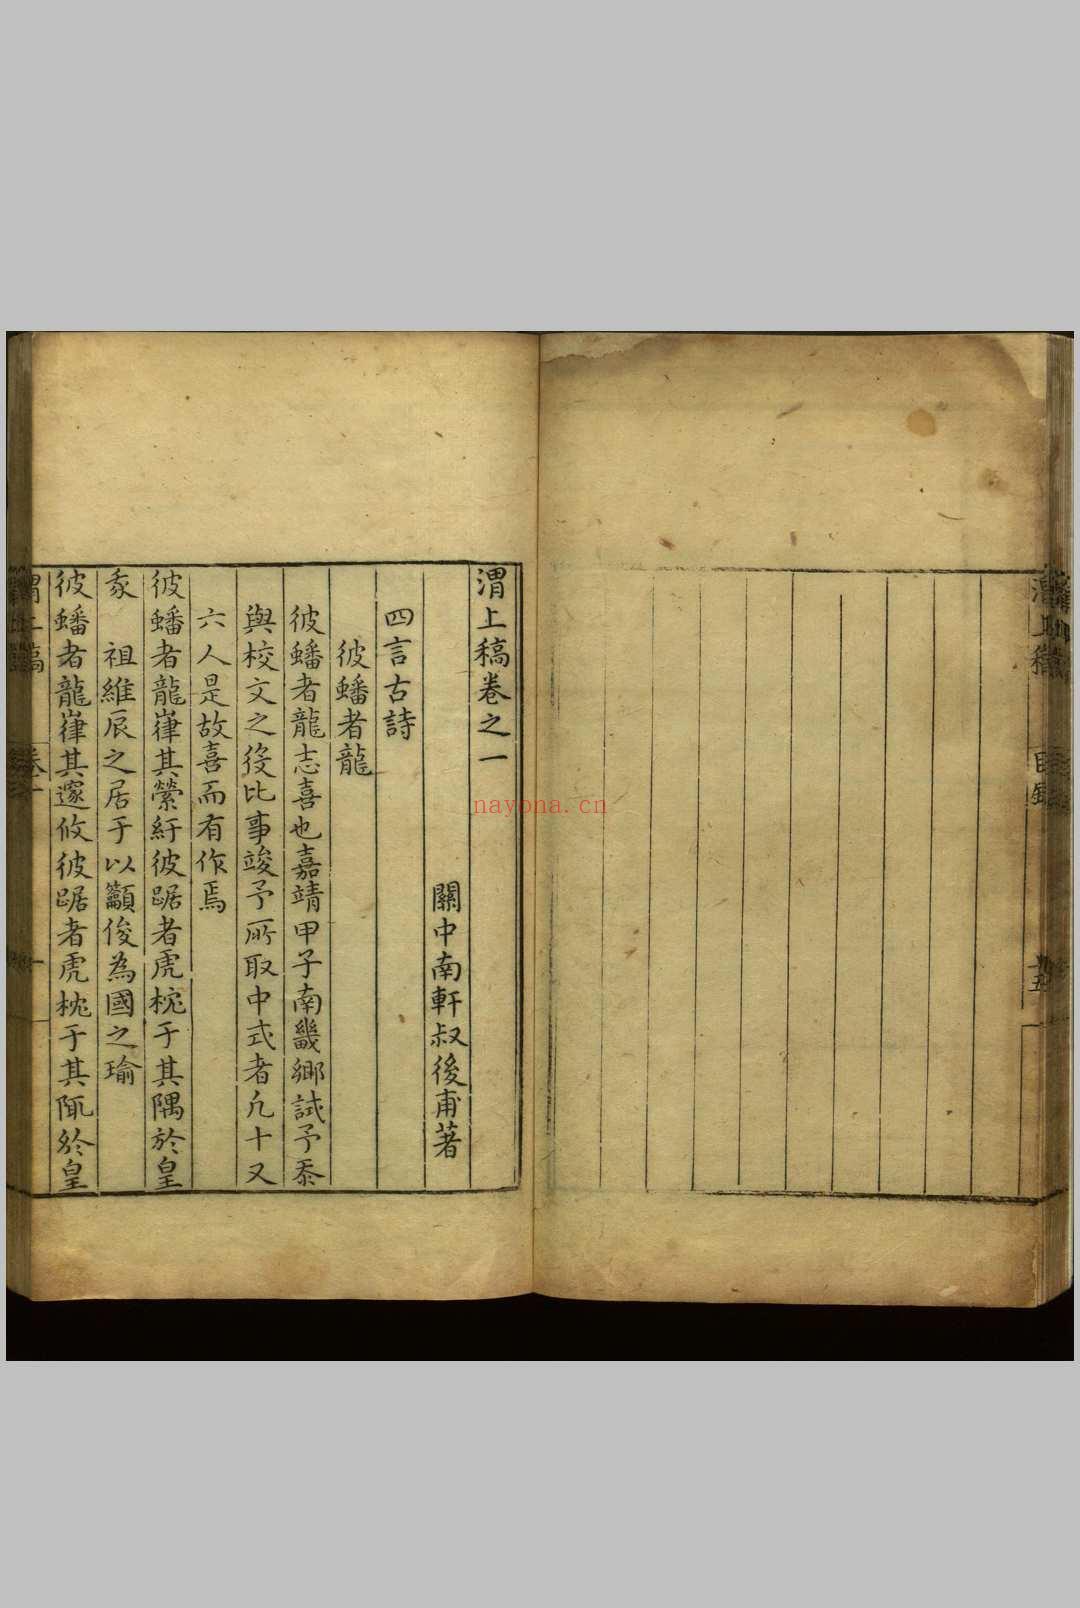 渭上稿卷之一
關中南軒叔後甫著
四言古詩
彼蟠者龍
彼蟠者龍志喜也嘉靖甲子南畿鄉試予忝
與校文之役比事竣予所取中式者凡十又
六人是故喜而有作焉
彼蟠者龍嵂其縈紆彼踞者虎枕于其隅於皇
豕　祖維辰之居于以籲俊為國之瑜
彼蟠者龍嵂其邃攸彼踞者虎枕于其阨於皇
渭上稿　卷一　一
目錄
nayona.cn